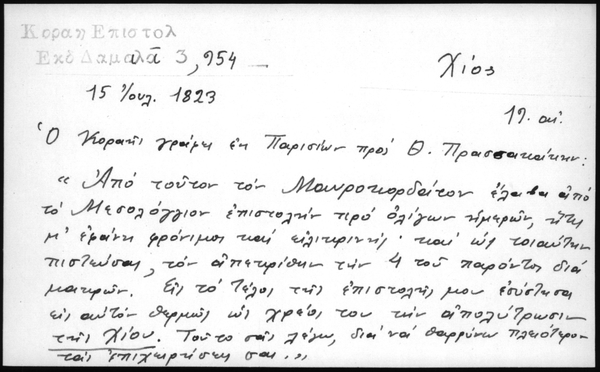 Κοραη Επιστολ
Εκδ Δαμαλᾶ 3, 954
Χίος
15 Ἰουλ. 1823
19. αἰ.
Ὁ Κοραῆς γράφει ἐκ Παρισίων πρός Θ. Πρασσακάκην:
"Ἀπό τοῦτον τόν Μαυροκορδᾶτον ἔλαβα ἀπό
τό Μεσολόγγιον ἐπιστολήν πρό ὀλίγων ἡμερῶν, ἥτις
μ' ἐφάνη φρόνιμος καί εἰλικρινής· καί ὡς τοιαύτην
πιστεύσας, τόν ἀπεκρίθην τήν 4 τοῦ παρόντος διά
μακρῶν. Εἰς τό τέλος τῆς ἐπιστολῆς μου ἐσύστησα
εἰς αὐτόν θερμῶς ὡς χρέος του τήν ἀπολύτρωσιν
τῆς Χίου. Τοῦτο σᾶς λέγω, διά νά θαρρύνω πλειότερον
τάς ἐπιχειρήσεις σας."